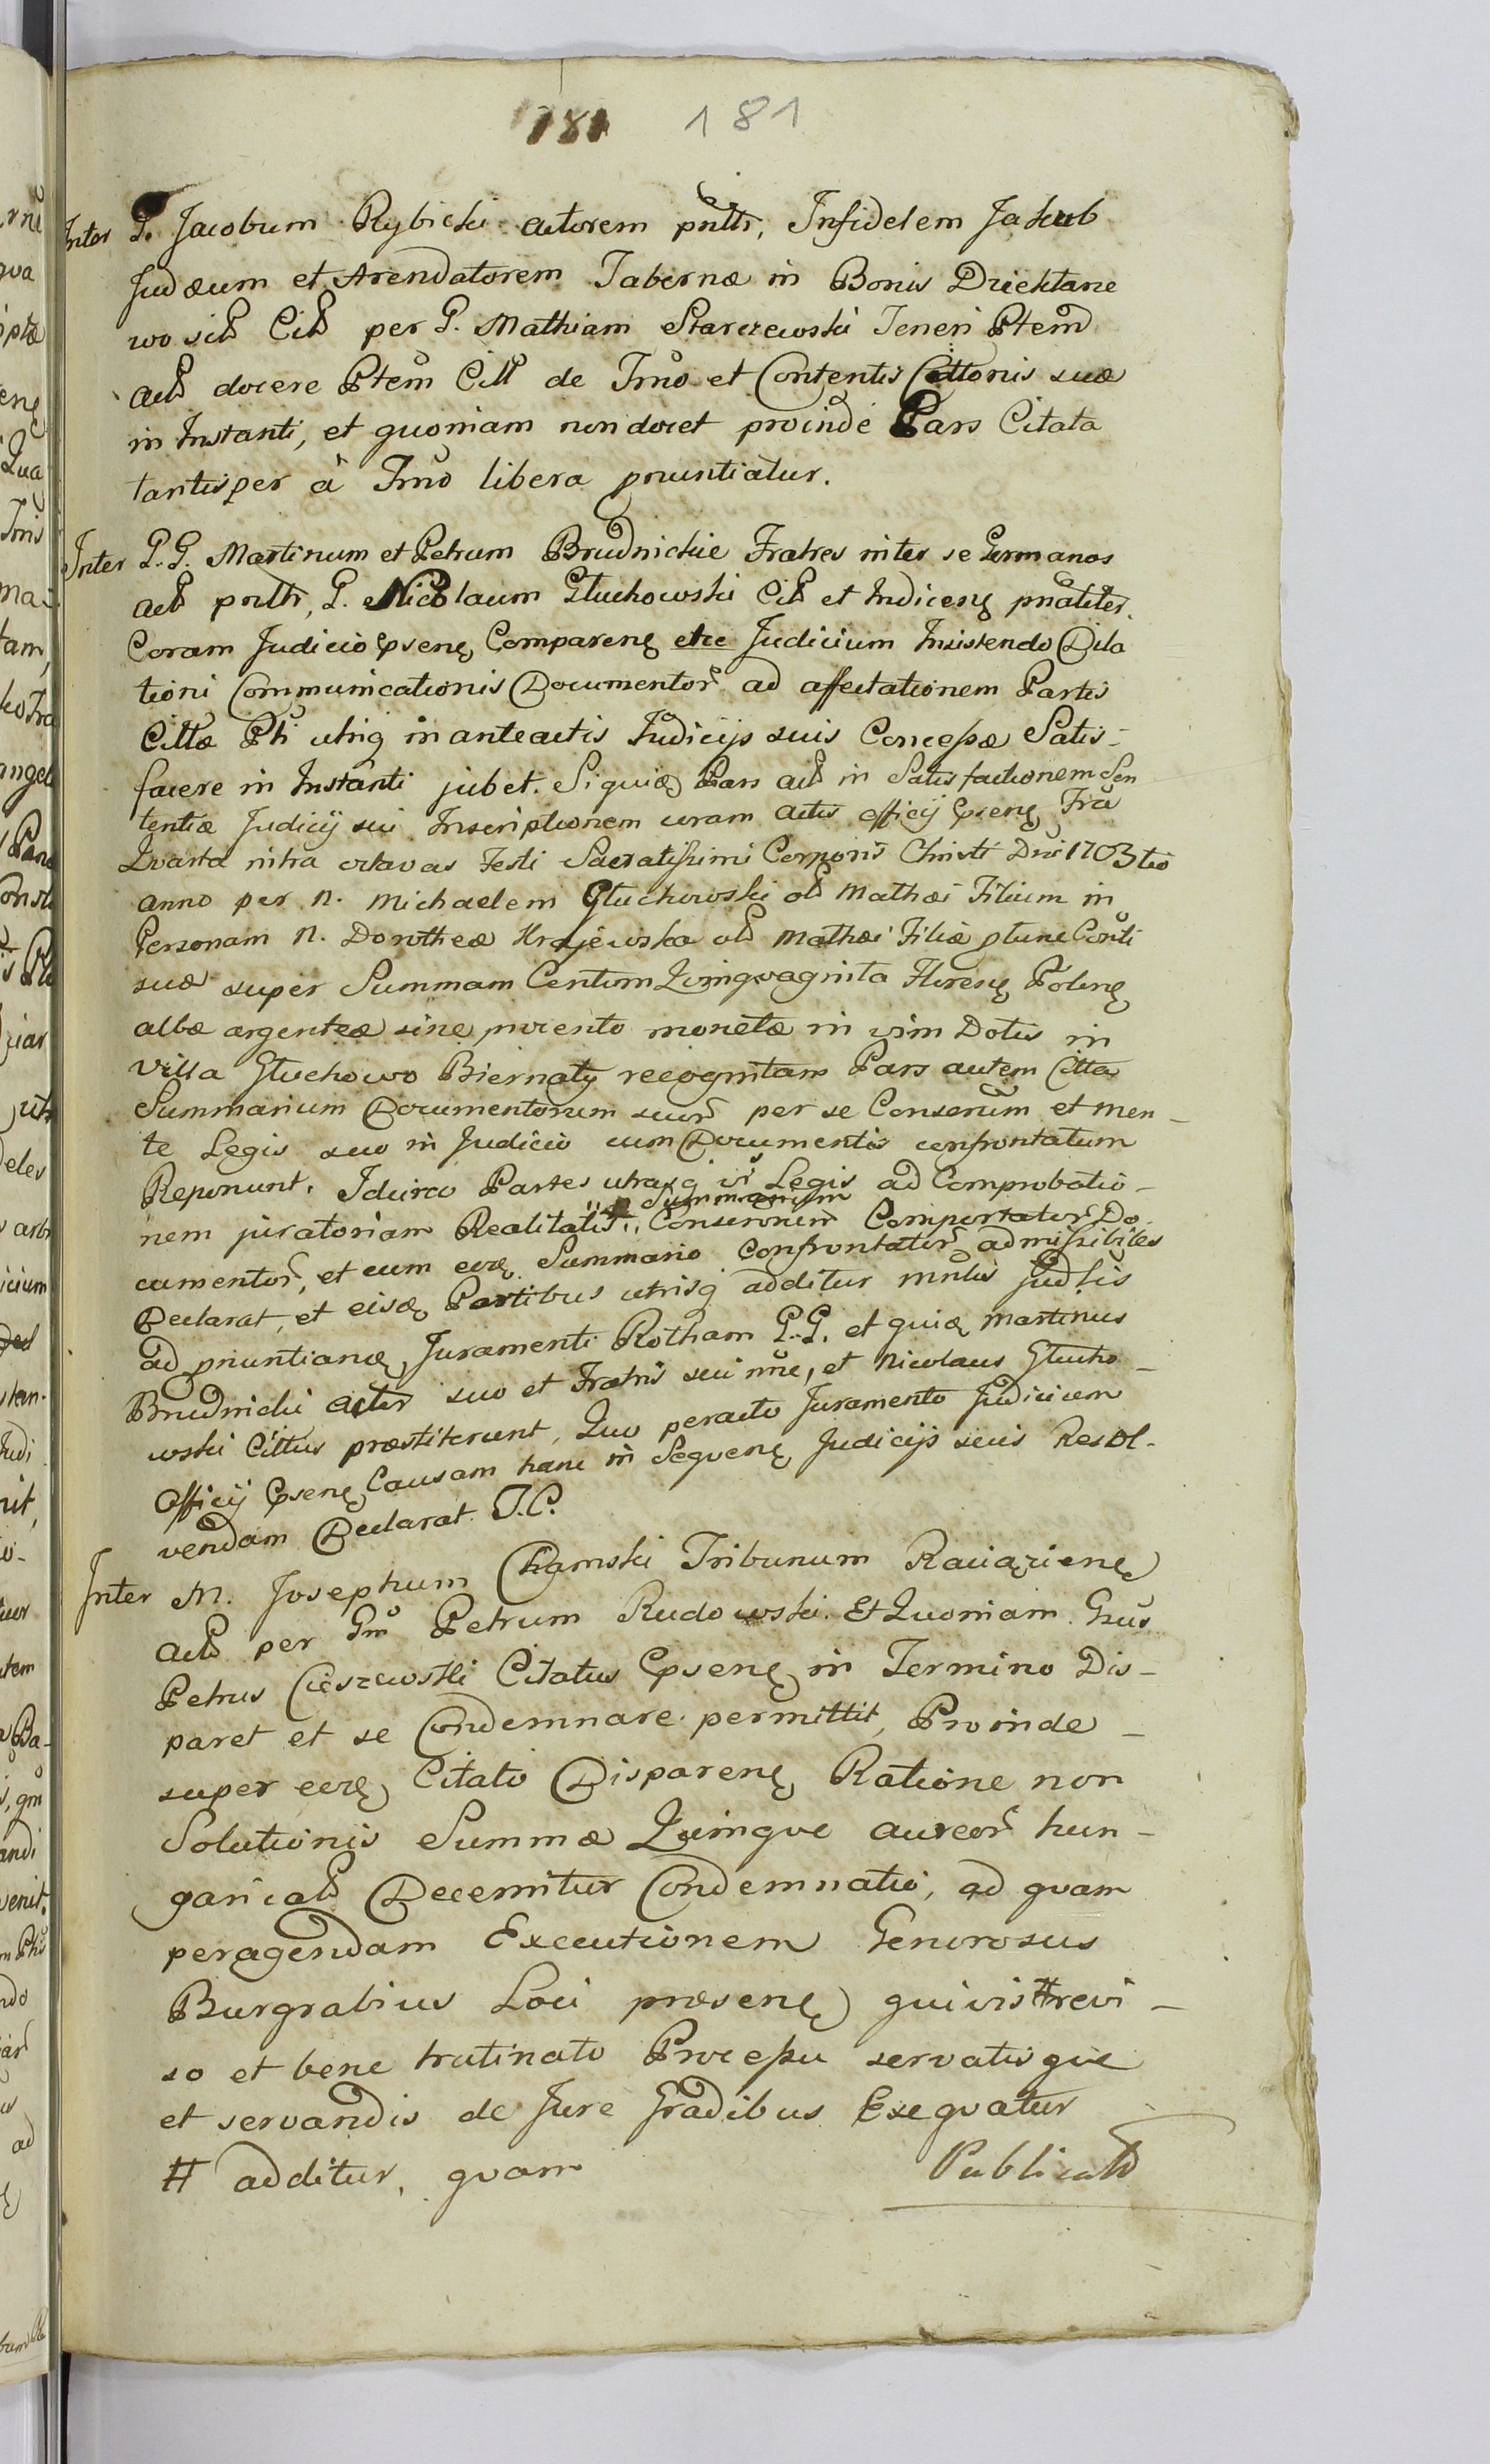 181 181
Inter G. Jacobum Rybicki actorem pntr, Infidelem Jakub
Judæum et Arendatorem Tabernæ in Bonis Dziektarze
wo sit Cit per G. Mathiam Starczewski Teneri Ptem
act docere Ptem Citt de Tmo et Contentis Cittonis suæ
in Instanti, et quoniam non docet proinde Pars Citata
tantisper à Tmo libera pnuntiatur.
Inter G. G. Martinum et Petrum Brudnickie Fratres inter se Germanos
act pntr, G. Nicolaum Głuchowski Cit et Judicenę pnaliter.
Coram Judicio Epsenę Comparenę etcc Judicium Insistendo Dila
tioni Communicationis Documentor ad affectationem Partis
Cittæ Pti utriq in anteactis Judicijs suis Concessæ Satis-
facere in Instanti jubet. Siquidę Pars act in Satisfactionem Sen
tentiæ Judicij sui Inscriptionem coram actis officij Epsenę Fria
Quarta intra octavas Festi Sacratissimi Corporis Christi Dni 1703tio
anno per N. Michaelem Głuchowski ol Mathæi Filium in
Personam N. Dorotheæ Krajewska ol Mathæi Filiæ ptunc Conti
suæ super Summam Centum Quinqvaginta Florenę Polonę
albæ argenteæ sine provento monetæ in vim Dotis in
Villa Głuchowo Biernaty recognitam Pars autem Citta
Summarium Documentorum suor per se Conserûm et men-
te Legis suo in Judicio cum Documentis confrontatum
Reponunt. Idcirco Partes utrasq vi Legis ad Comprobatio-
Summarium
nem juratoriam Realitatis Conseronem Comportator Do
cumentor, et cum eorę Summario Confrontator admissibiles
Declarat, et eisdę Partibus utrisq additur mnlis judlis
ad pnuntiandę Juramenti Rotham G. G. et quidę Martinus
Brudnicki Actor suo et Fratris sui nne, et Nicolaus Głucho-
wski Cittus præstiterunt, Quo peracto Juramento Judicium
Officij Epsenę Causam hanc in Seqvenę Judicijs suis Resol-
vendam Declarat T. C.
Inter M. Josephum Chamski Tribunum Raciązienę
act per Gm Petrum Rudowski. Et Quoniam Gsus
Petrus Cieszewski Citatus Epsenę in Termino Dis-
paret et se Condemnare permittit, Proinde-
super eorę Citato Disparenę Ratione non
Solutionis Summæ Quinqve aureor hun-
garical Decernitur Condemnatio, ad qvam
peragendam Executionem Generosus
Burgrabius Loci præsenę quivis # revi-
so et bene trutinato Processu servatisqve
et servandis de Jure Gradibus Exeqvatur
# additur, qvam Publicat